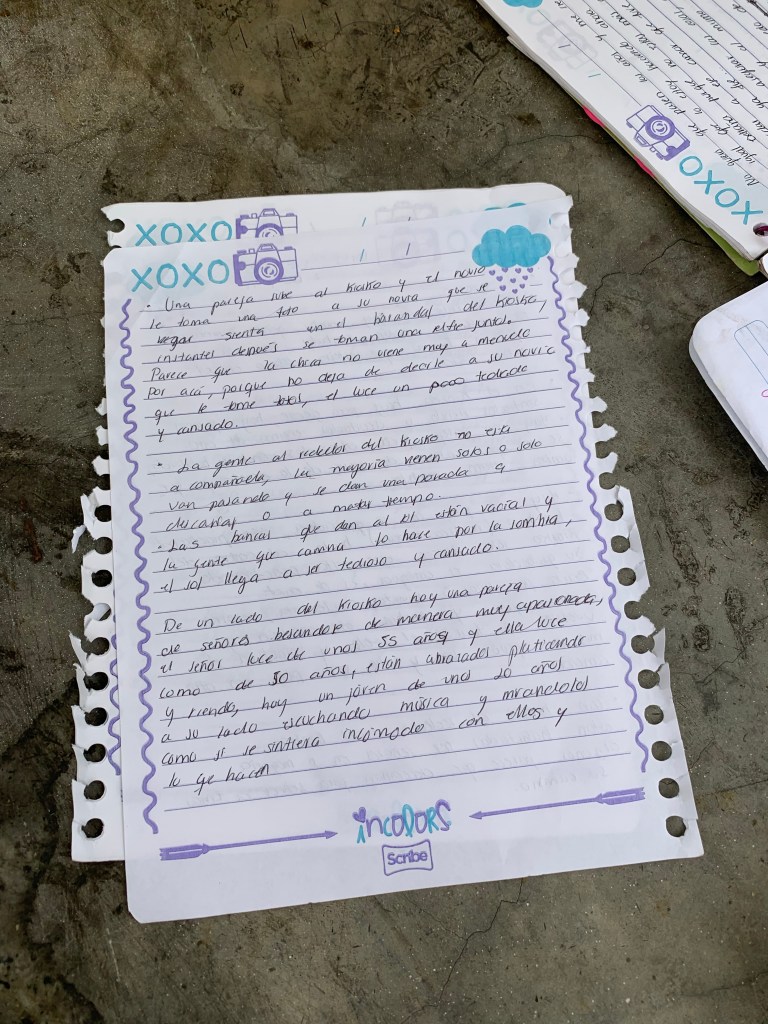 XOXO
XOXO
• Una pareja sube al kiosko y el novio
le toma una foto a su novia que se
sienta en el barandal del kiosko,
instantes después se toman una selfie juntos.
Parece que la chica no viene muy a menudo
por acá, porque no deja de decirle a su novio
que le tome fotos, el luce un poco tedeado
y cansado.
• La gente al rededor del kiosko no esta
acompañada, la mayoría vienen solos o solo
van pasando y se dan una parada a
descansar o a matar tiempo.
• Las bancas que dan al sol están vacías y
la gente que camina lo hace por la sombra,
el sol llega a ser tedioso y cansado.
De un lado del kiosko hay una pareja
de señores besandose de manera muy apasionada,
el señor luce de unos 55 años, y ella luce
como de 50 años, están abrazados platicando
y riendo, hay un jóven de unos 20 años
a su lado escuchando música y mirandolos
como si se sintiera incómodo con ellos y
lo qe hacen
incolors
Scribe
XOXO
No quiero
igual